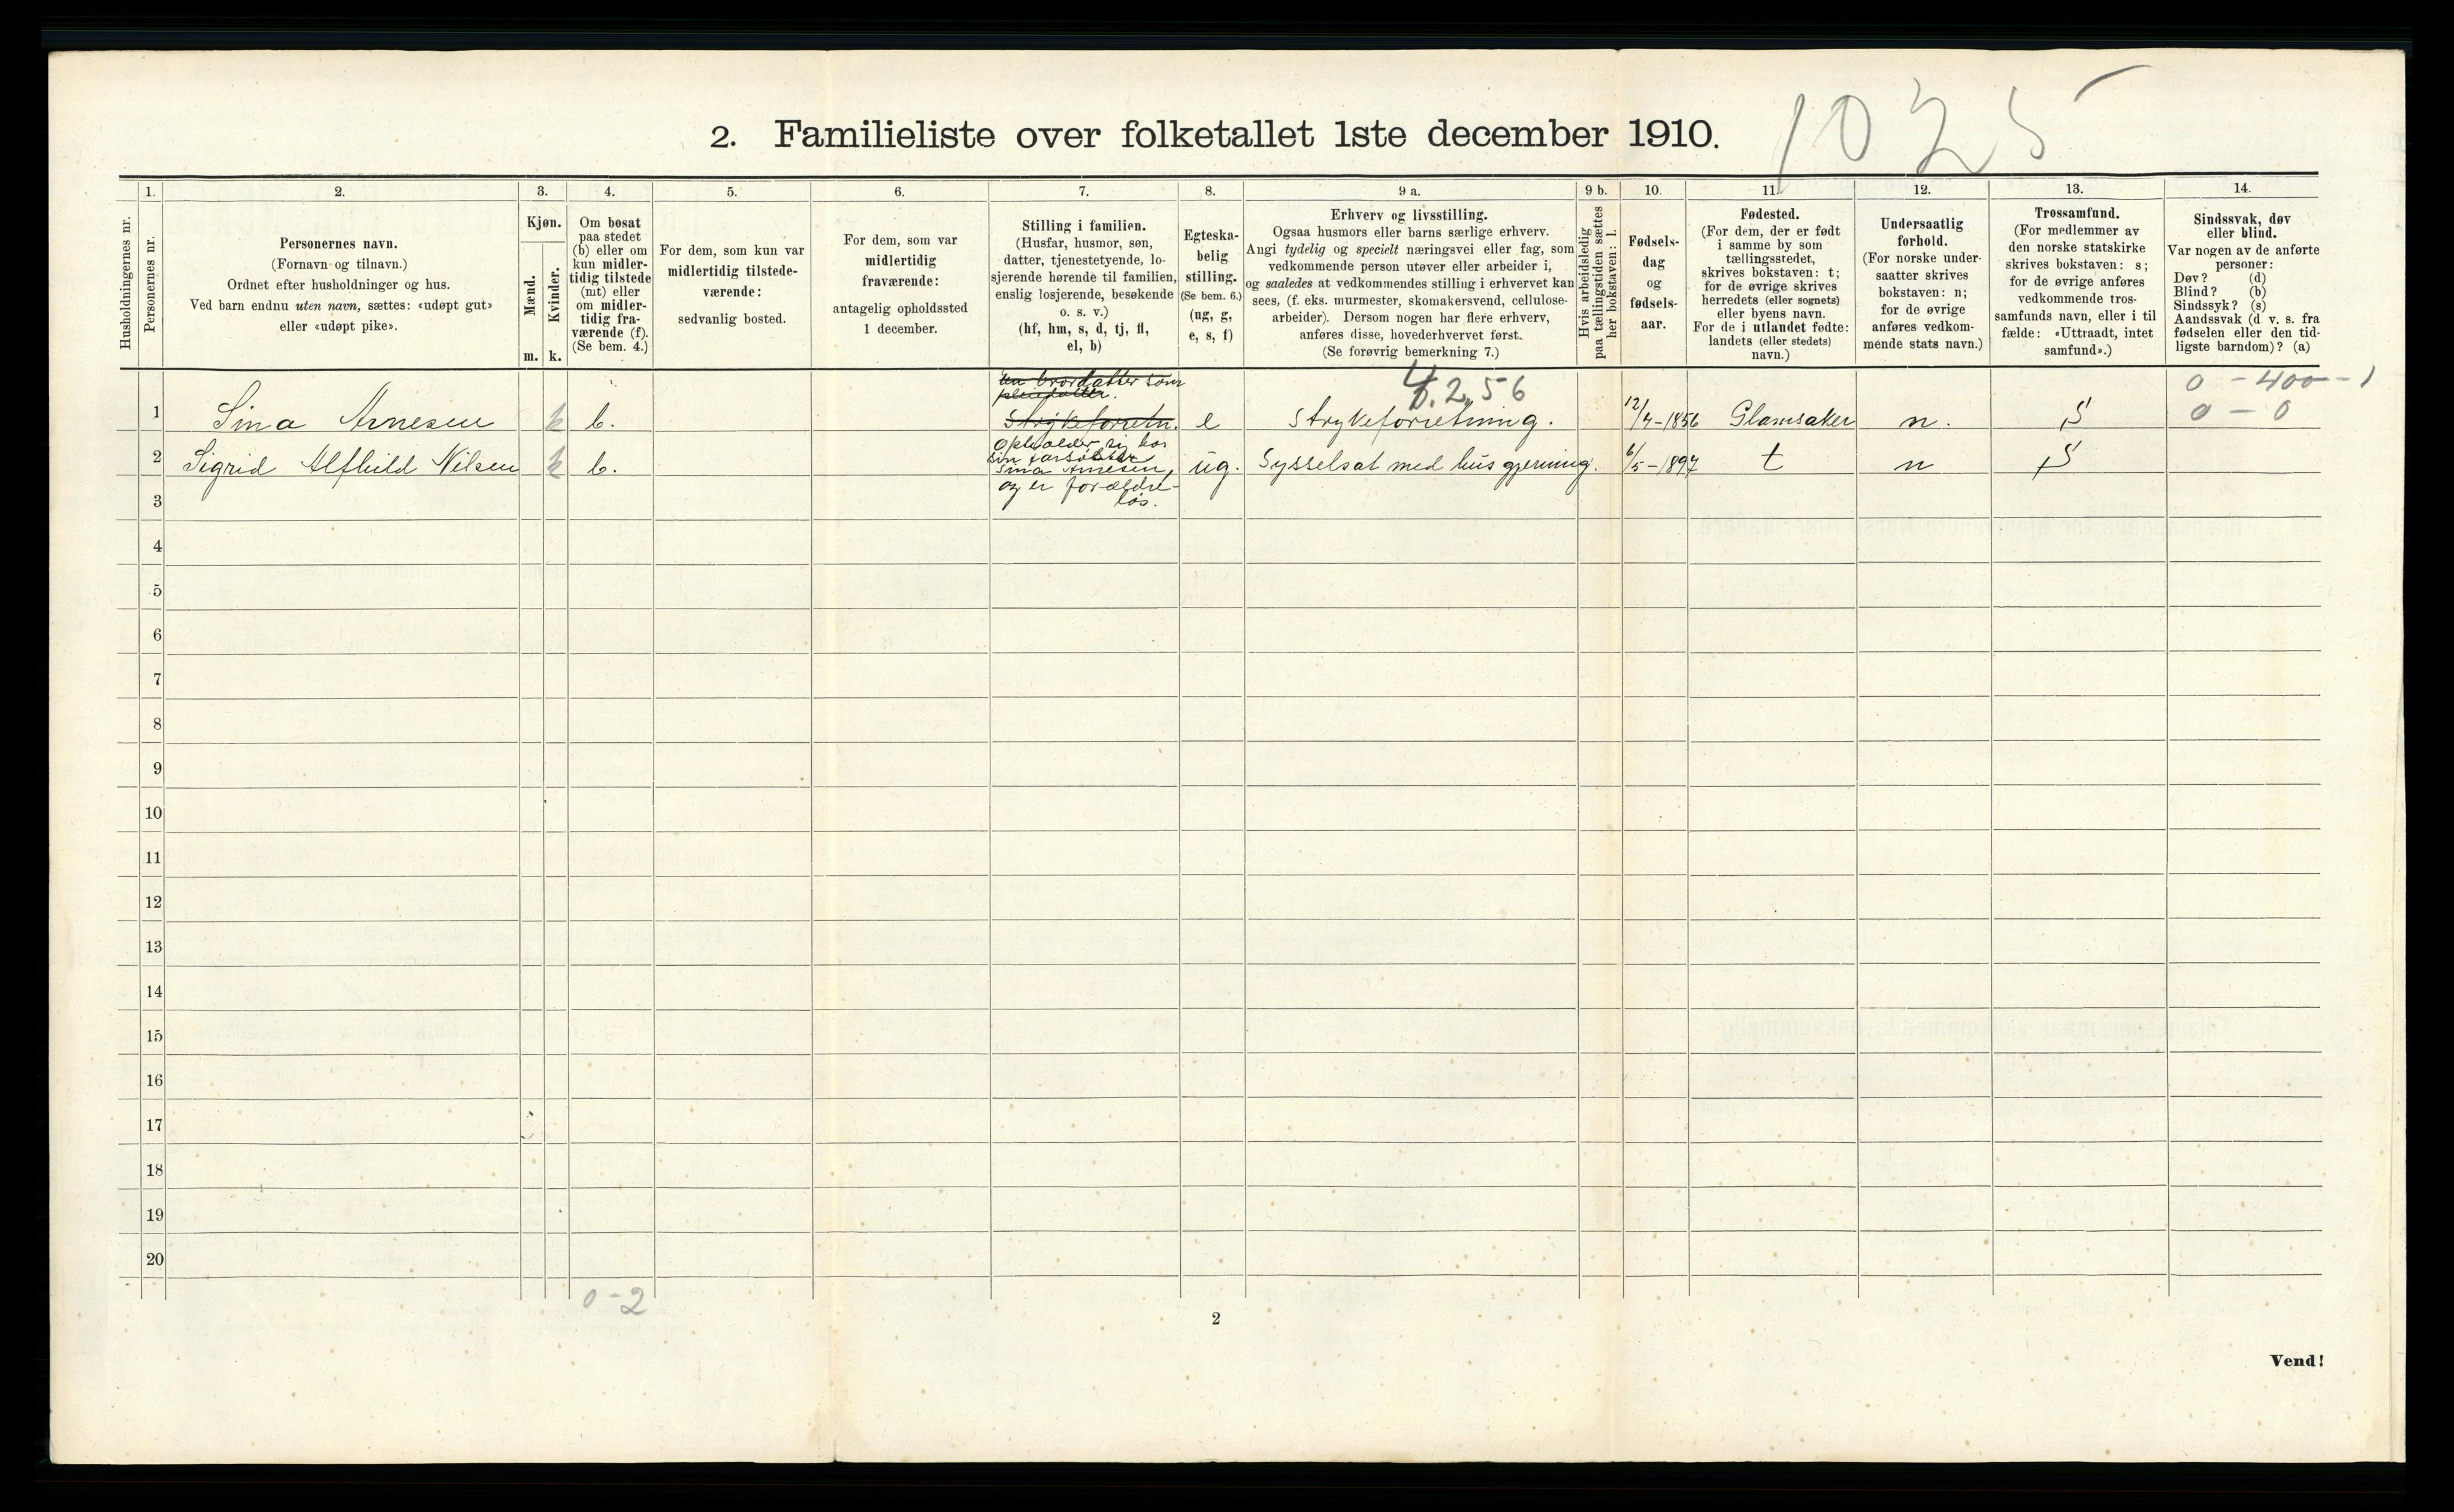 2. Familieliste over folketallet 1ste december 1910.
1025
1. 2. 3. 4. 5. 6. 7. 8. 9 a. 9 b. 10. 11. 12. 13. 14.
Husholdningernes nr.
Personernes nr.
Personernes navn.
(Fornavn og tilnavn.)
Ordnet efter husholdninger og hus.
Ved barn endnu uten navn, sættes: «udøpt gut»
eller «udøpt pike».
Kjøn.
Mænd.
Kvinder.
m. k.
Om bosat
paa stedet
(b) eller om
kun midler-
tidig tilstede
(mt) eller
om midler-
tidig fra-
værende (f).
(Se bem. 4.)
For dem, som kun var
midlertidig tilstede-
værende:
sedvanlig bosted.
For dem, som var
midlertidig
fraværende:
antagelig opholdssted
1 december.
Stilling i familien.
(Husfar, husmor, søn,
datter, tjenestetyende, lo-
sjerende hørende til familien,
enslig losjerende, besøkende
o. s. v.)
(hf, hm, s, d, tj, fl,
el, b)
Egteska-
belig
stilling.
(Se bem. 6.)
(ug, g,
e, s, f)
Erhverv og livsstilling.
Ogsaa husmors eller barns særlige erhverv.
Angi tydelig og specielt næringsvei eller fag, som
vedkommende person utøver eller arbeider i,
og saaledes at vedkommendes stilling i erhvervet kan
sees, (f. eks. murmester, skomakersvend, cellulose-
arbeider). Dersom nogen har flere erhverv,
anføres disse, hovederhvervet først.
(Se forøvrig bemerkning 7.)
Hvis arbeidsledig
paa tællingstiden sættes
her bokstaven: l.
Fødsels-
dag
og
fødsels-
aar.
Fødested.
(For dem, der er født
i samme by som
tællingsstedet,
skrives bokstaven: t;
for de øvrige skrives
herredets (eller sognets)
eller byens navn.
For de i utlandet fødte:
landets (eller stedets)
navn.)
Undersaatlig
forhold.
(For norske under-
saatter skrives
bokstaven: n;
for de øvrige
anføres vedkom-
mende stats navn.)
Trossamfund.
(For medlemmer av
den norske statskirke
skrives bokstaven: s;
for de øvrige anføres
vedkommende tros-
samfunds navn, eller i til
fælde: «Uttraadt, intet
samfund».)
Sindssvak, døv
eller blind.
Var nogen av de anførte
personer:
Døv? (d)
Blind? (b)
Sindssyk? (s)
Aandssvak (d. v. s. fra
fødselen eller den tid-
ligste barndom)? (a)
en brordatter som
pleiedatter.
4.2.56
0 - 400 - 1
0 - 0
1 Sina Arnesen k b. Strykeforretn. e Strykeforretning. 12/4-1856 Glamsaker n. S
Opholder sig hos
sin farsøster
2 Sigrid Alfhild Nilsen k b. Sina Arnesen, ug. Sysselsat med husgjerning. 6/5-1897 t n S
og er forældre-
løs.
3
4
5
6
7
8
9
10
11
12
13
14
15
16
17
18
19
20
0-2
2
Vend!